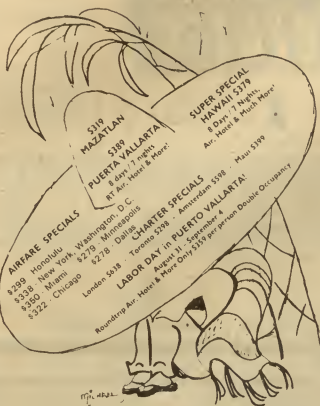 $319
MAZATLAN
$389
PUERTA VALLARTA
8 days / 7 nights
RT Air. Hotel & More!
SUPER SPECIAL
HAWAII $379
8 Days / 7 Nights,
Air. Hotel & Much More!
AIRFARE SPECIALS
$299 . Honolulu
$338 . New York, Washington, D.C.
$350 . Miami $279 . Minneapolis
$322 . Chicago $278 . Dallas
CHARTER SPECIALS
London $638 . Toronto $298 . Amsterdam $598 . Maui $399
LABOR DAY in PUERTO VALLARTA!
August 31 - September 4
Roundtrip Air, Hotel & More Only $359 per person Double Occupancy
MICHAEL